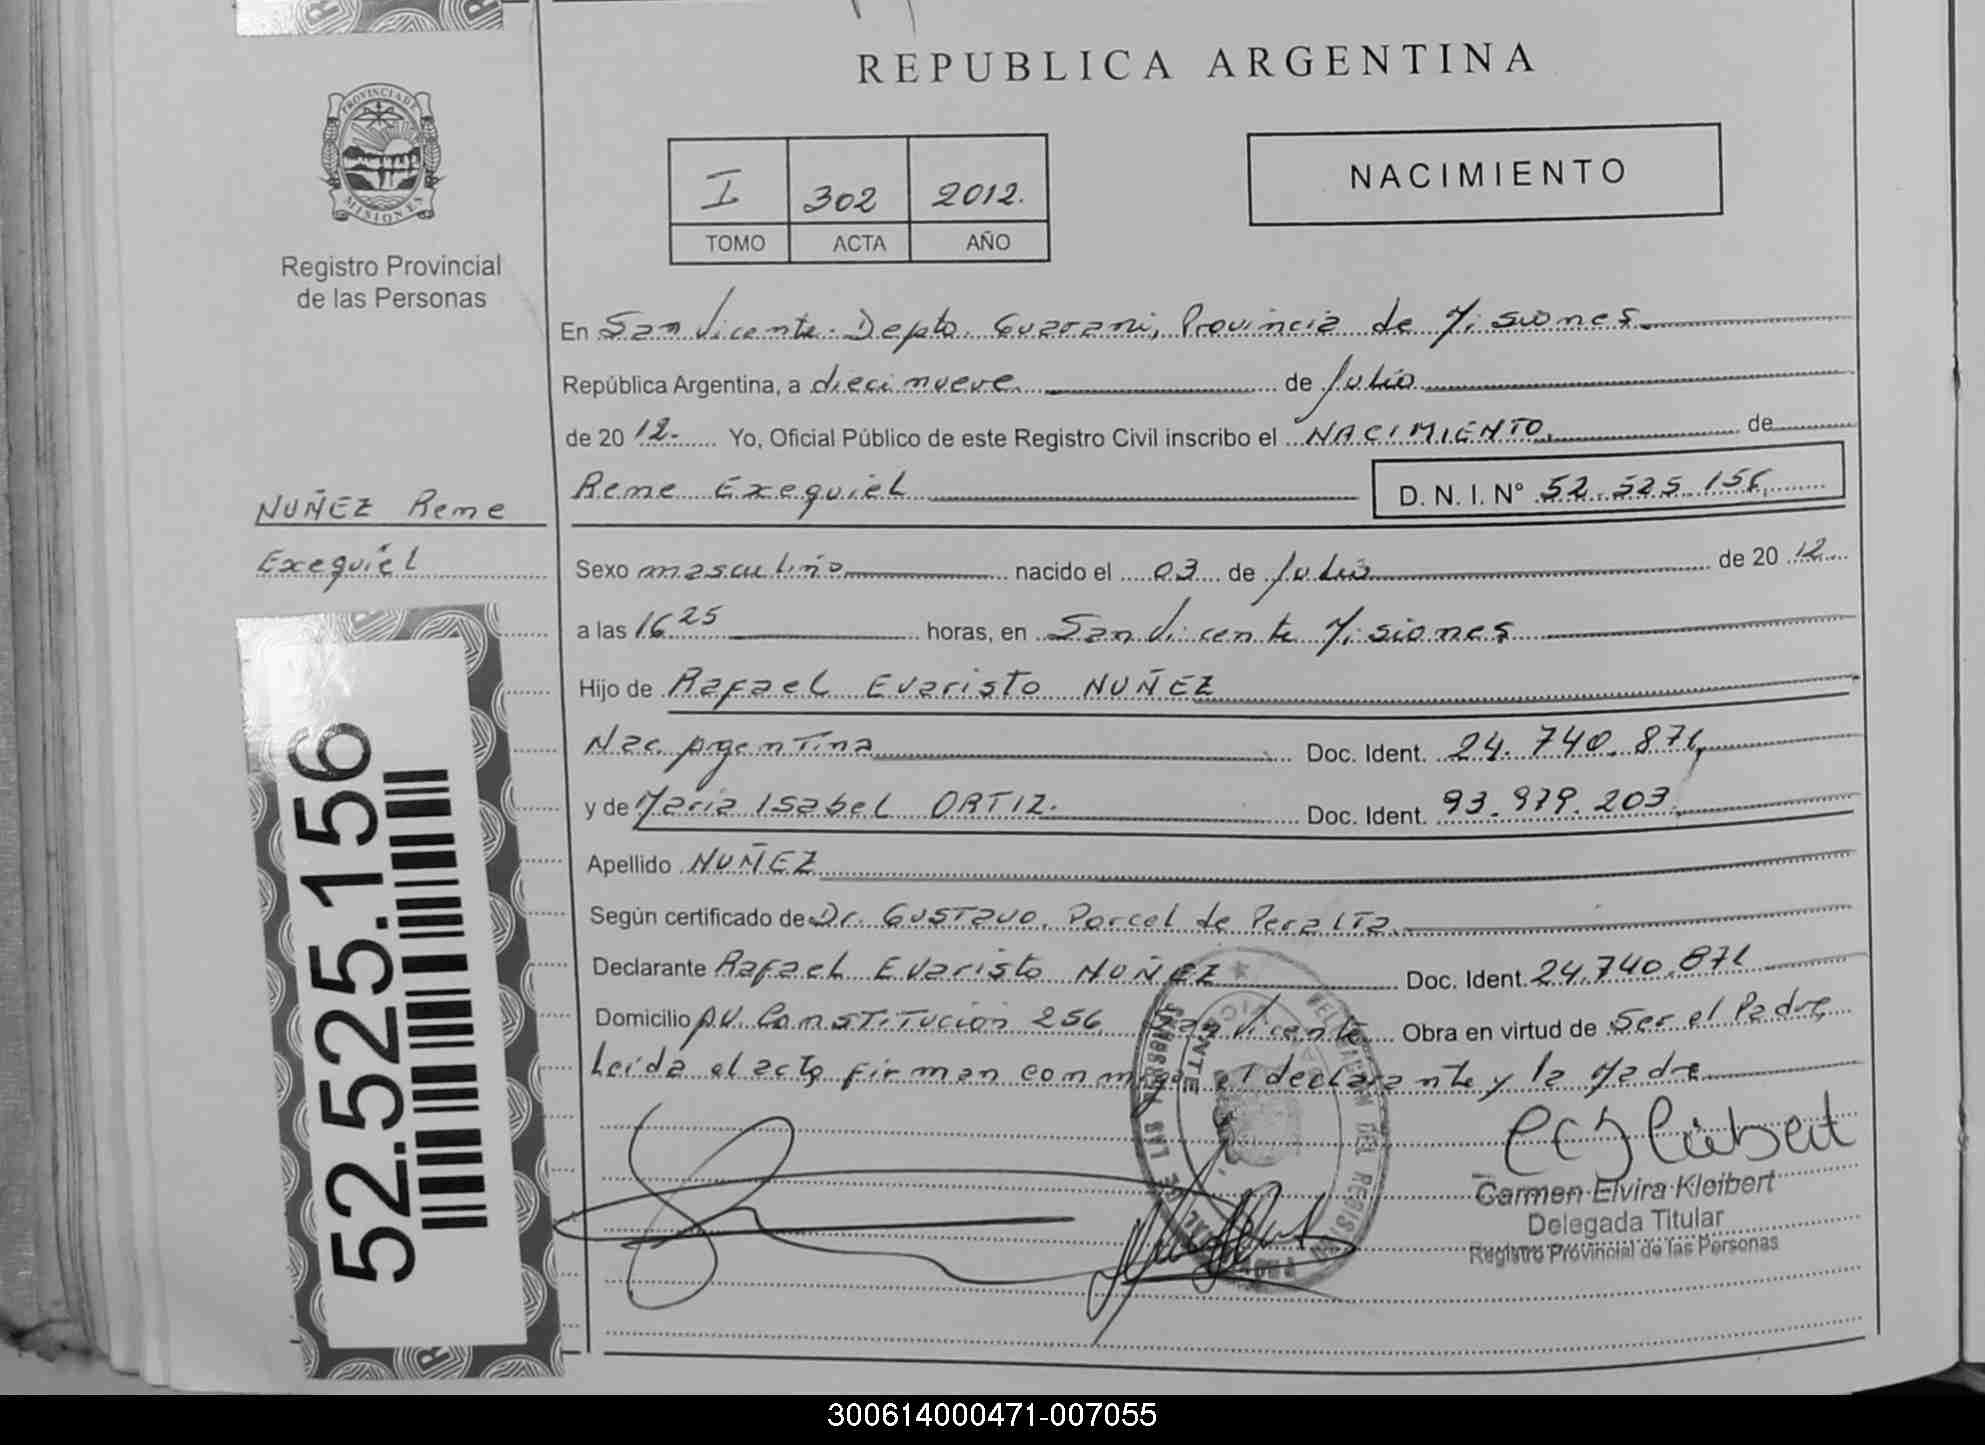 REPUBLICA ARGENTINA
PROVINCIA DE
MISIONES
Registro Provincial
de las Personas
I 302 2012.
TOMO ACTA AÑO
NACIMIENTO
En San Vicente. Depto. Guarani, Provincia de Misiones.
República Argentina, a diecinueve de Julio
de 20 12- Yo, Oficial Público de este Registro Civil inscribo el NACIMIENTO, de
Rene Exequiel D. N. I. Nº 52.525.156
NUÑEZ Rene
Exequiel
Sexo masculino nacido el 03 de Julio de 20 12
a las 16 25 horas, en San Vicente Misiones
Hijo de Rafael Evaristo NUÑEZ
Nac. Argentina Doc. Ident. 24.740.871,
y de Maria Isabel ORTIZ. Doc. Ident. 93.979.203.
Apellido NUÑEZ
Según certificado de Dr. Gustavo. Porcel de Peralta.
Declarante Rafael Evaristo NUÑEZ Doc. Ident. 24.740.871
Domicilio AV. Constitucion 256 San Vicente Obra en virtud de Ser el Padre,
Leida el acta firman conmigo el declarante y la Madre.
52.525.156
Carmen Elvira Kleibert
Delegada Titular
Registro Provincial de las Personas
300614000471-007055